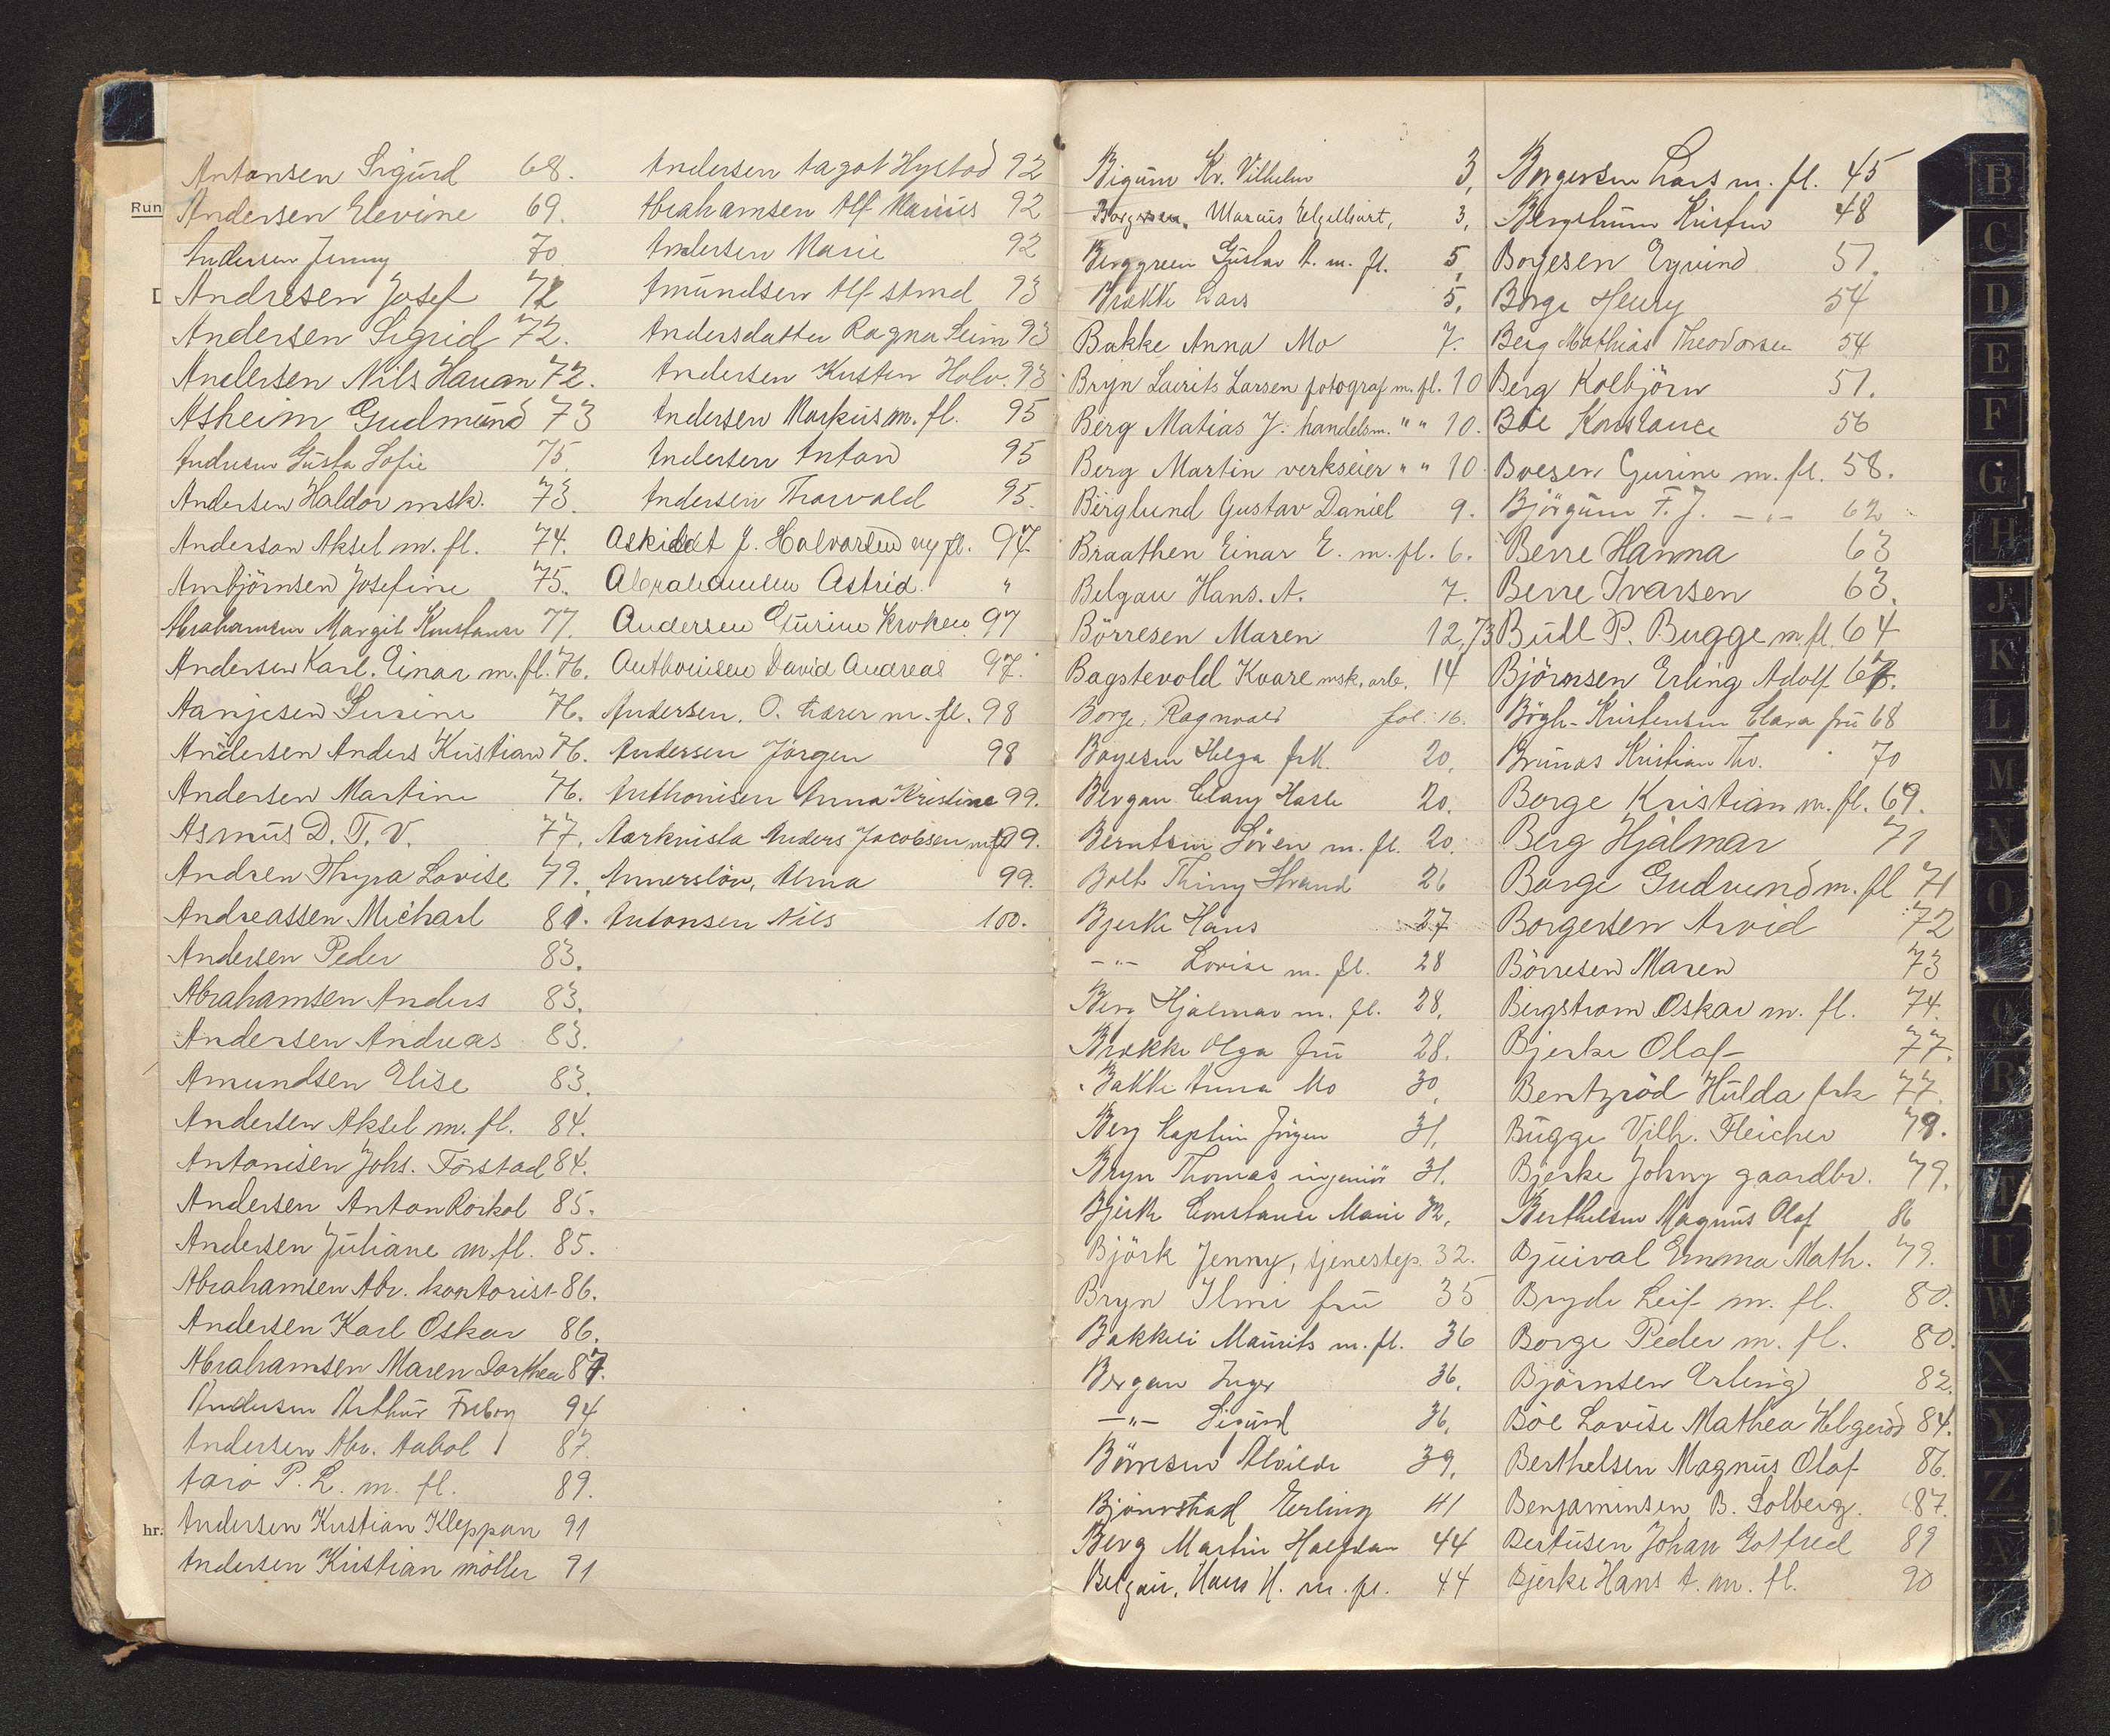 Antonsen Sigurd 68.
Andersen Elevine 69.
Andersen Jenny 70
Andresen Josef 72
Andersen Sigrid 72.
Andersen Nils Hauan 72.
Asheim Gudmund 73
Andresen Gusta Sofie 75.
Andersen Haldor msk. 73.
Anderson Aksel m. fl. 74.
Ambjörnsen Josefine 75.
Abrahamsen Margit Konstanse 77.
Andersen Karl. Einar m. fl. 76.
Aanjesen Susine 76.
Andersen Anders Kristian 76.
Andersen Martine 76.
Asmus D. T. V. 77.
Andren Thyra Lovise 79.
Andreassen Michael 81.
Andersen Peder 83.
Abrahamsen Anders 83.
Andersen Andreas 83.
Amundsen Elise 83.
Andersen Aksel m. fl. 84.
Antonisen Johs. Förstad 84.
Andersen Anton Rorkol 85.
Andersen Juliane m. fl. 85.
Abrahamsen Abr. kontorist 86.
Andersen Karl Oskar 86.
Abrahamsen Maren Dorthea 87.
Andersen Arthur Freborg 94
Andersen Abr. Aabol 87.
Aarö P. L. m. fl. 89.
Andersen Kristian Kleppan 91
Andersen Kristian möller 91
Andersen Aagot Hystad 92
Abrahamsen Alf Marius 92
Andersen Marie 92
Amundsen Alf 93
Andersdatter Ragna Seim 93
Andersen Kristen Holv. 93
Andersen Markus m. fl. 95
Andersen Anton 95
Andersen Thorvald 95.
J. Halvorsen 97.
Abrahamsen Astrid. "
Andersen Gurine Kroken 97
Anthonisen David Andreas 97.
Andersen. O. lærer m. fl. 98
Andersen Jörgen 98
Anthonisen Anna Kristine 99.
Aarkvisla Anders Jacobsen m. fl. 99.
Annerslöv, Alma 99.
Antonsen Nils 100.
Bigum Kr. Vilhelm 3,
Borgersen, Marcus Engelhart, 3,
Berggreen Gustav A. m. fl. 5,
Brække Lars 5,
Bakke Anna Mo 7.
Bryn Laurits Larsen fotograf m. fl. 10
Berg Matias J. handelsm. " " 10.
Berg Martin verkseier " " 10.
Berglund Gustav Daniel 9.
Braathen Einar E. m. fl. 6.
Belgau Hans. A. 7.
Börresen Maren 12, 73
Bagstevold Kaare msk. arb. 14
Borge, Ragnvald fol. 16.
Boyesen Helga frk. 20,
Bergan Clary Hasle 20.
Berntsen Sören m. fl. 20.
Strand 26
Bjerke Hans 27
-"- Lovise m. fl. 28
Berg Hjalmar m. fl. 28,
Brække Olga fru 28.
Bakke Anna Mo 30,
Berg Kaptein Jörgen 31,
Bryn Thomas ingeniör 31.
Bjerk Constance Marie 32,
Björk Jenny, tjenestep. 32.
Bryn Ilmi fru 35
Bakkeli Maurits m. fl. 36
Bergan Inger 36,
-"- Sigurd 36,
Börresen Alvilde 39,
Bjönnstad Erling 41
Berg Martin Halfdan 44
Belgau, Hans H. m. fl. 44
Borgersen Lars m. fl. 45
Bergstrum Kristen 48
Boyesen Eyvind 51.
Borge Henry 54
Berg Mathias Theodorsen 54
Berg Kolbjörn 51.
Böe Konstance 56
Boesen Gurine m. fl. 58.
Björgum F. J. -"- 62
Berre Hanna 63
Berre Ivarsen 63.
Bull P. Bugge m. fl. 64
Björnsen Erling Adolf 67.
Bögh-Kristensen Clara fru 68
Brunas Kristian Thv. 70
Borge Kristian m. fl. 69.
Berg Hjalmar 71
Borge Gudrund m. fl 71
Borgersen Arvid 72
Börresen Maren 73
Bergstrom Oskar m. fl. 74.
Bjerke Olaf 77.
Bentzröd Hulda frk 77.
Bugge Vilh. Fleicher 79.
Bjerke Johny gaardbr. 79.
Berthelsen Magnus Olaf 86
Bjuival Emma Math. 79.
Bryde Leif m. fl. 80.
Borge Peder m. fl. 80.
Björnsen Erling 82.
Böe Lovise Mathea Helgeröd 84.
Berthelsen Magnus Olaf 86.
Benjaminsen B. Solberg. 87.
Bertüsen Johan Gotfred 89
Bjerke Hans A. m. fl. 90
Run
hr.
B
C
D
E
F
G
H
J
K
L
M
N
O
R
T
U
W
X
Y
Z